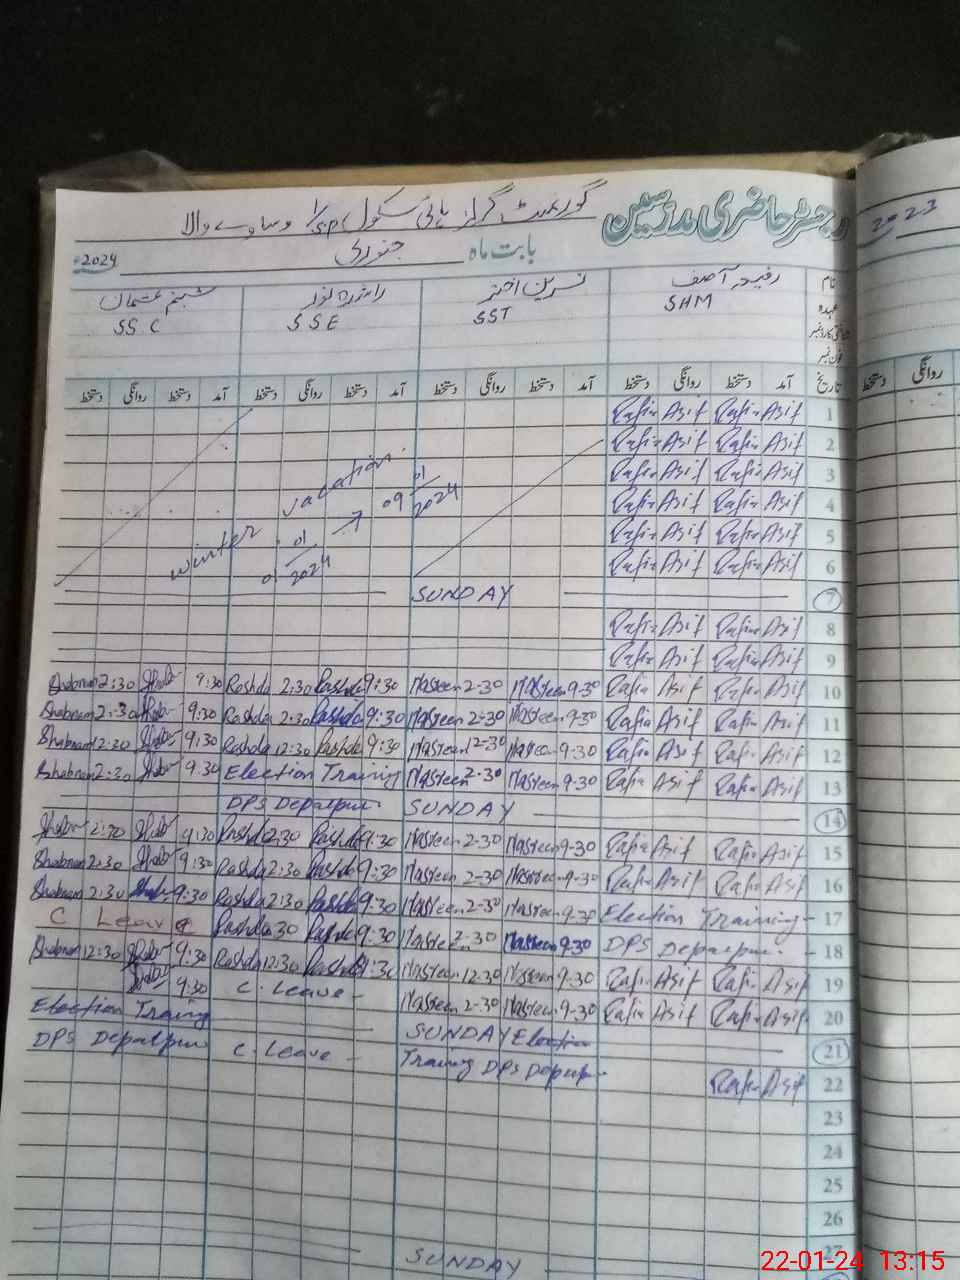 رجسٹر حاضری مدرسین گورنمنٹ گرلز ہائی سکول 1/SP وساوے والا
2023
بابت ماہ جنوری 2024
نام رفیعہ آصف نسرین اختر راشدہ شبنم عثمان
عہدہ SHM SST SSE SSC
فون نمبر
تاریخ آمد دستخط روانگی دستخط آمد دستخط روانگی دستخط آمد دستخط روانگی دستخط آمد دستخط روانگی دستخط
روانگی دستخط
Rafia Asif Rafia Asif 1
Rafia Asif Rafia Asif 2
Rafia Asif Rafia Asif 3
Rafia Asif Rafia Asif 4
Rafia Asif Rafia Asif 5
Rafia Asif Rafia Asif 6
winter vacation.
01 01/2024 → 09 01/2024
SUNDAY 7
Rafia Asif Rafia Asif 8
Rafia Asif Rafia Asif 9
Shabnam 2:30 9:30 Rashda 2:30 Rashda 9:30 Nasreen 2-30 Nasreen 9-30 Rafia Asif Rafia Asif 10
Shabnam 2:30 9:30 Rashda 2:30 Rashda 9:30 Nasreen 2-30 Nasreen 9-30 Rafia Asif Rafia Asif 11
Shabnam 12:30 9:30 Rashda 12:30 Rashda 9:30 Nasreen 12-30 Nasreen 9-30 Rafia Asif Rafia Asif 12
Shabnam 2:30 9:30 Election Training Nasreen 2-30 Nasreen 9-30 Rafia Asif Rafia Asif 13
DPS Depalpur SUNDAY 14
2:30 9:30 Rashda 2:30 Rashda 9:30 Nasreen 2-30 Nasreen 9-30 Rafia Asif Rafia Asif 15
Shabnam 2:30 9:30 Rashda 2:30 Rashda 9:30 Nasreen 2-30 Nasreen 9-30 Rafia Asif Rafia Asif 16
Shabnam 2:30 9:30 Rashda 2:30 Rashda 9:30 Nasreen 2-30 Nasreen 9-30 Election Training - 17
C Leave Rashda 2:30 Rashda 9:30 Nasreen 2-30 Nasreen 9-30 DPS Depalpur. - 18
Shabnam 12:30 9:30 Rashda 12:30 Rashda 9:30 Nasreen 12-30 Nasreen 9-30 Rafia Asif Rafia Asif 19
9:30 C. Leave - Nasreen 2-30 Nasreen 9-30 Rafia Asif Rafia Asif 20
Election Traing SUNDAY Election 21
DPS Depalpur C. Leave - Training DPS Depalpur Rafia Asif 22
23
24
25
26
SUNDAY 27
22-01-24 13:15